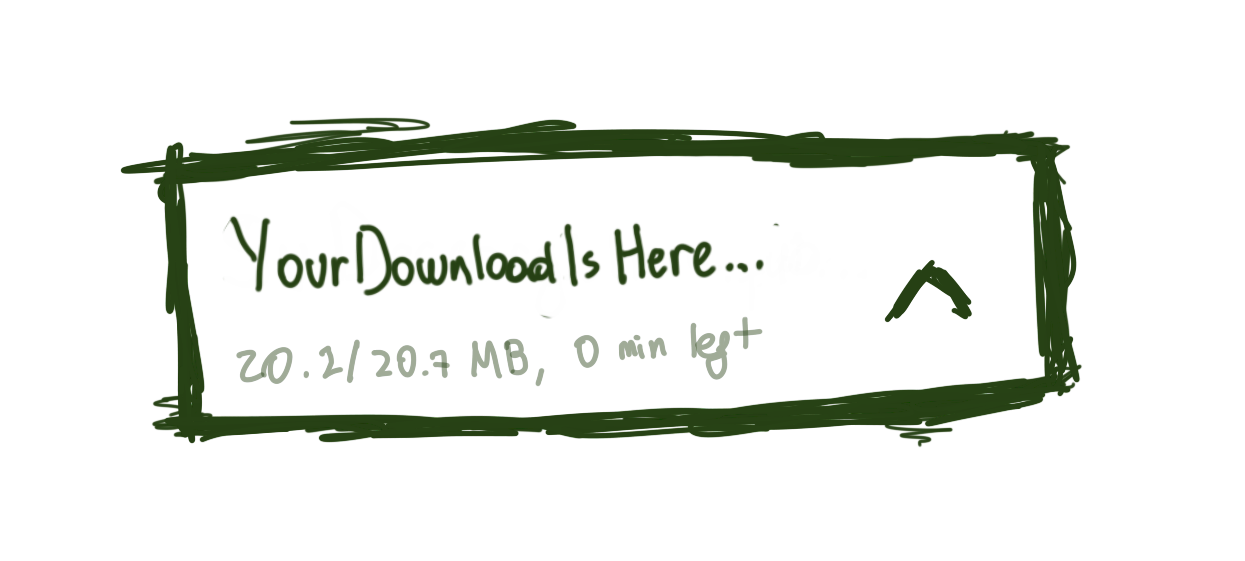 Your Download Is Here...
20.2/20.7 MB, 0 min left